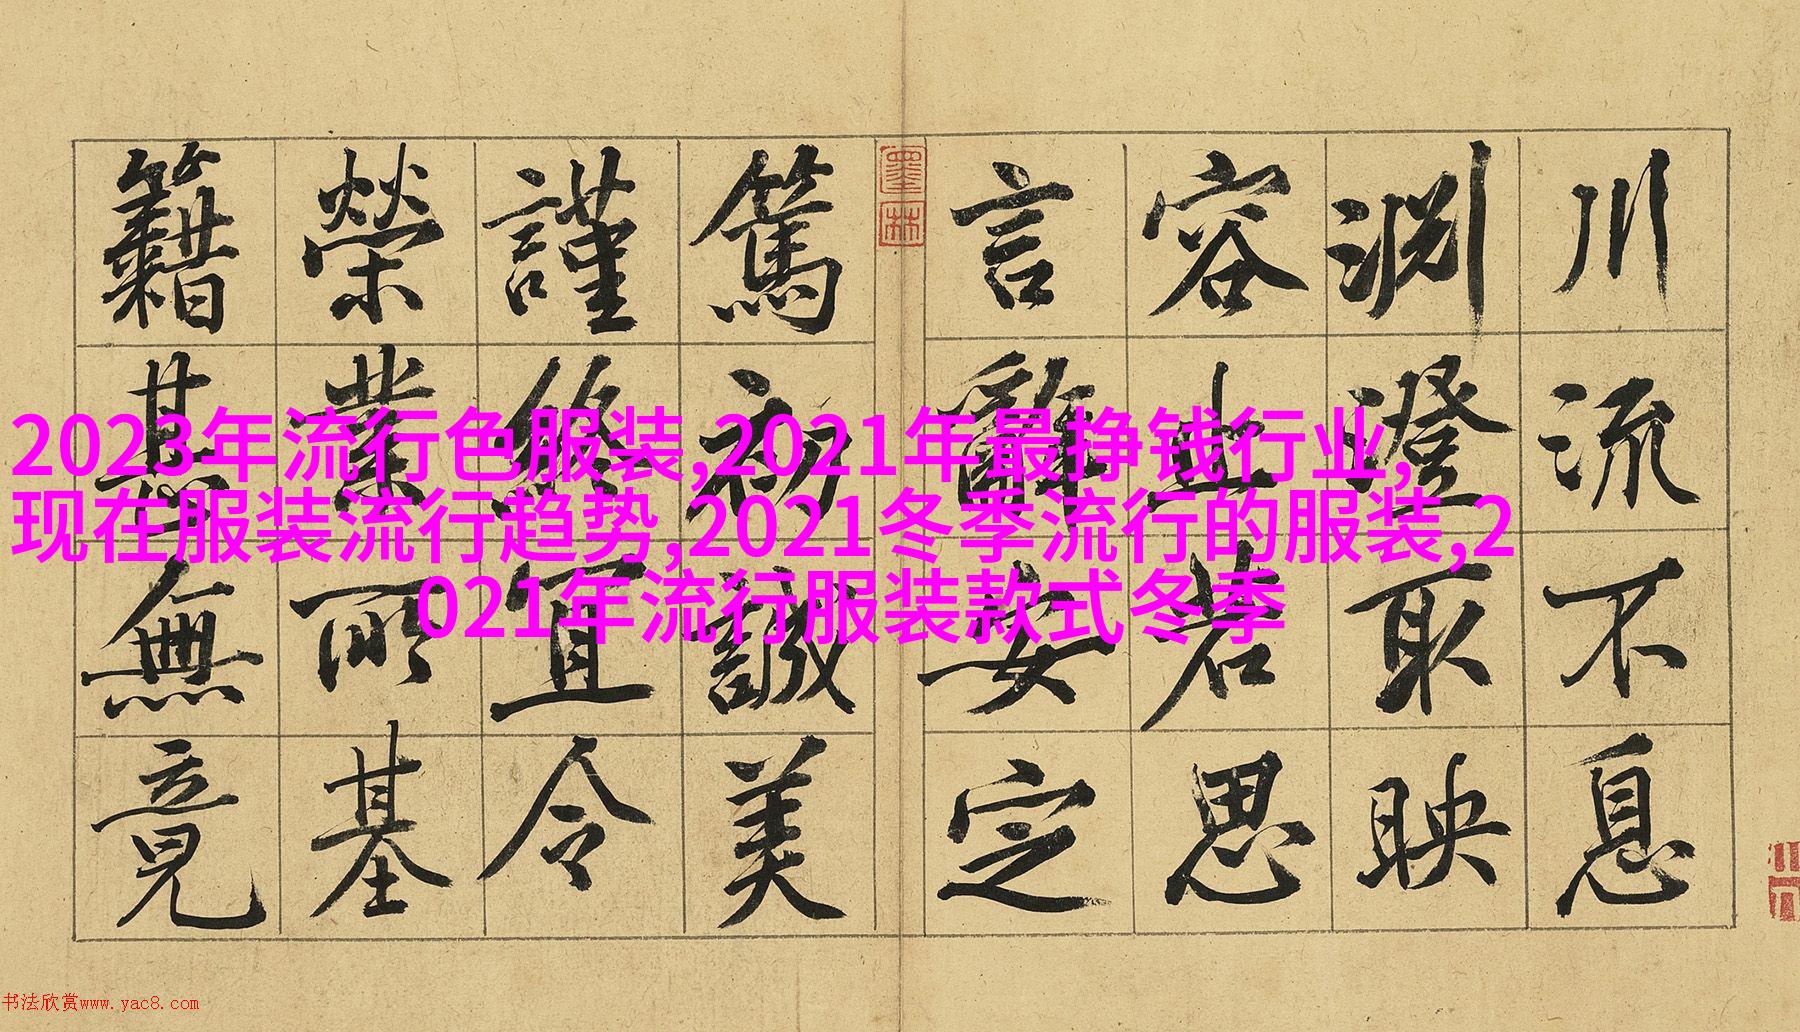 川流不息
淵澄取映
容止若思
言辭安定
墨林
篤初誠美
謹終宜令
榮業所基
籍甚無竟
2023年流行色服装,2021年最挣钱行业,
现在服装流行趋势,2021冬季流行的服装,2
021年流行服装款式冬季
书法欣赏www.yac8.com